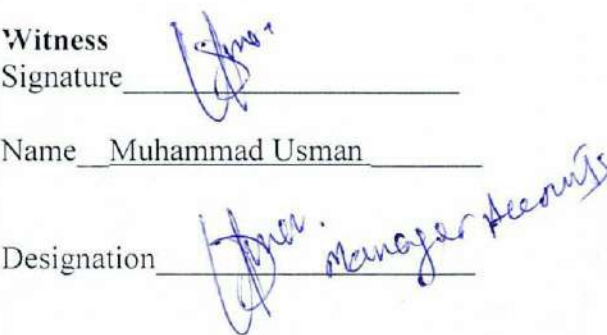 Witness
Signature
Name Muhammad Usman
Designation Manager Accounts